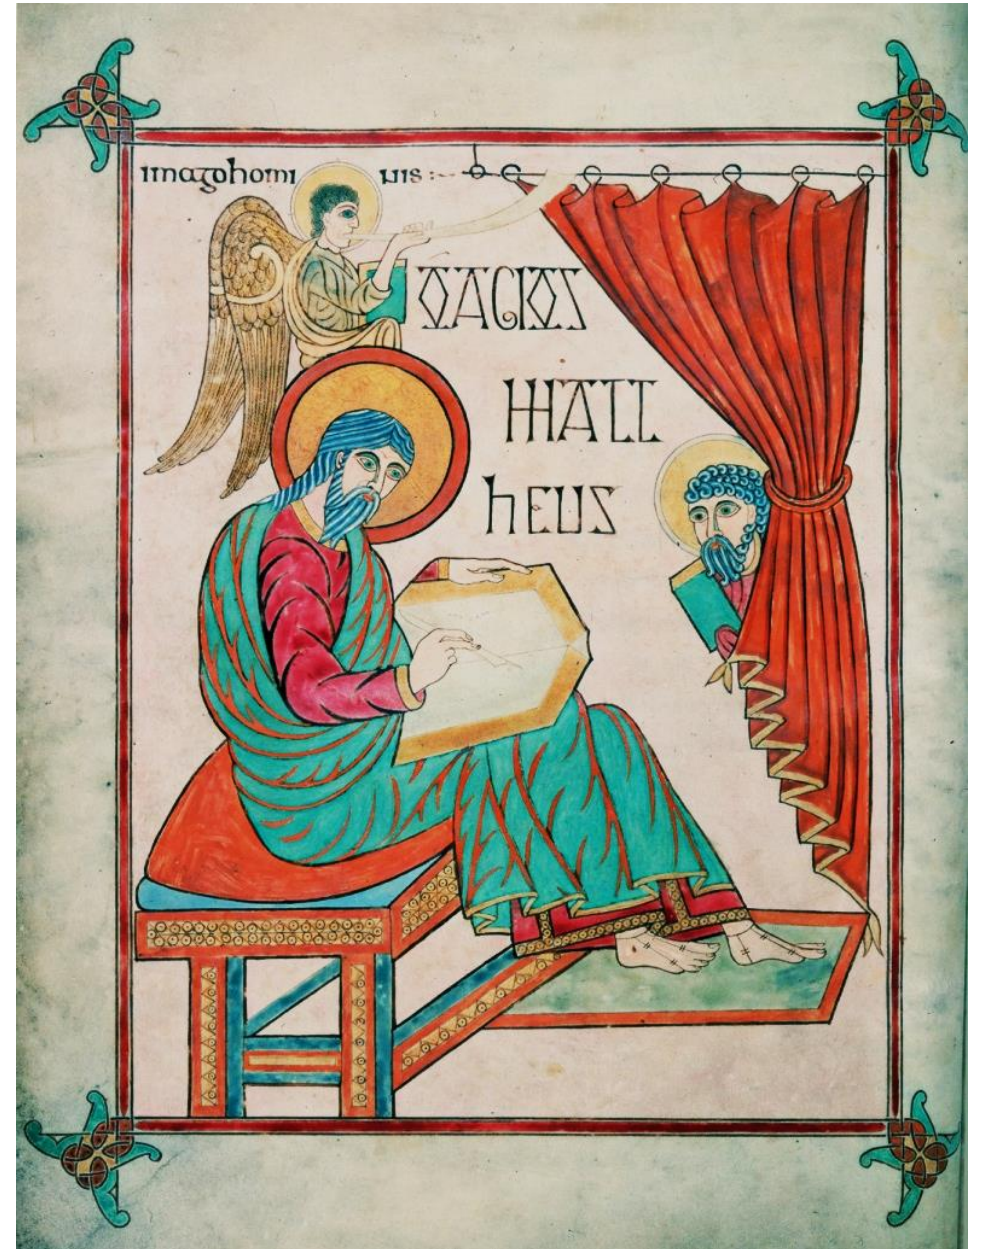 imago homi nis
O AGIOS
MATT
hEUS